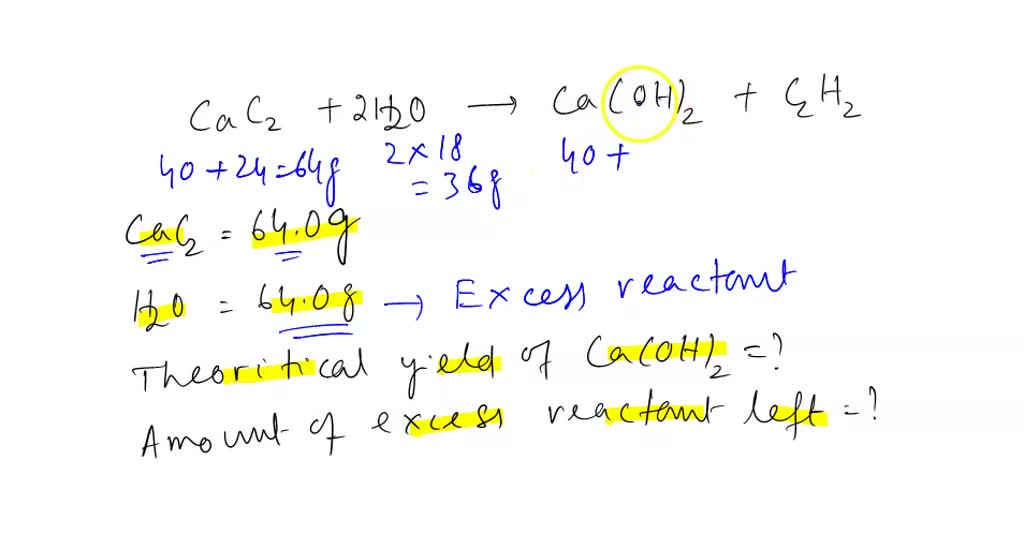 CaC₂ + 2H₂O → Ca(OH)₂ + C₂H₂
40 + 24 = 64g 2 × 18 40 +
= 36g
CaC₂ = 64.0g
H₂O = 64.0g → Excess reactant
Theoritical yield of Ca(OH)₂ = ?
Amount of excess reactant left = ?